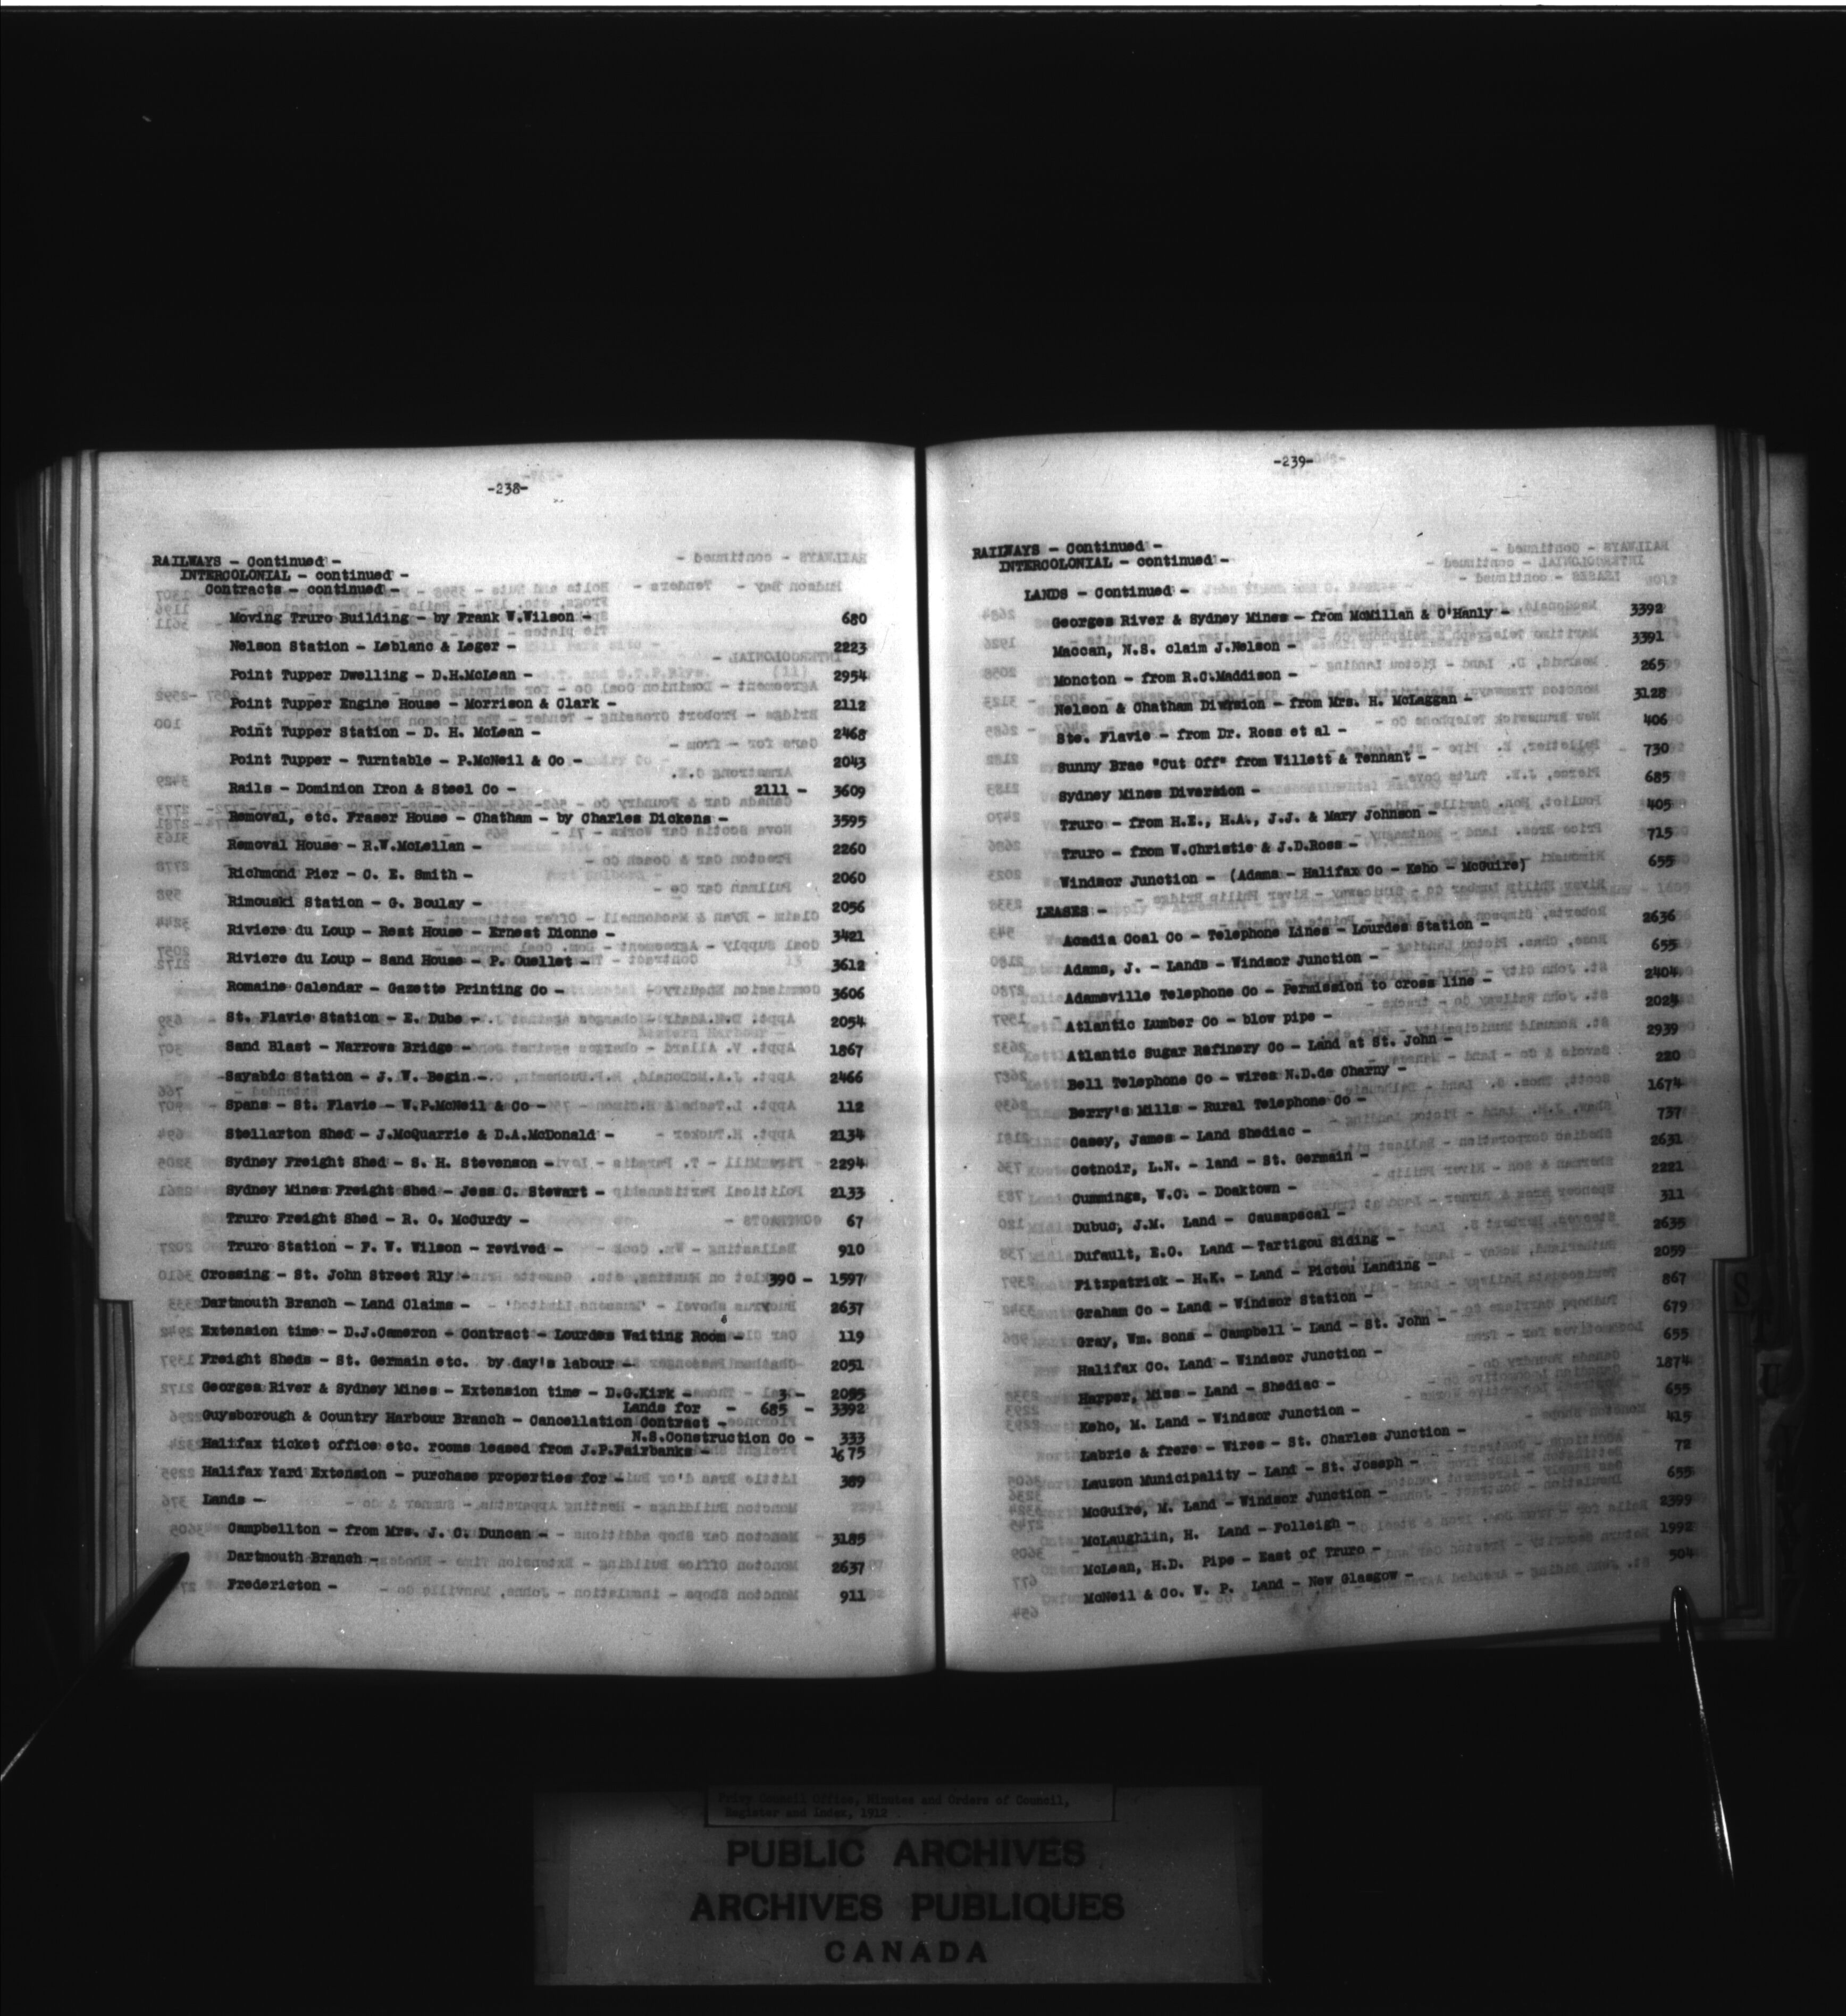 -238-
RAILWAYS - Continued -
INTERCOLONIAL - continued -
Contracts - continued -
Moving Truro Building - by Frank W.Wilson - 680
Nelson Station - Leblanc & Leger - 2223
Point Tupper Dwelling - D.H.McLean - 2954
Point Tupper Engine House - Morrison & Clark - 2112
Point Tupper Station - D. H. McLean - 2468
Point Tupper - Turntable - P.McNeil & Co - 2043
Rails - Dominion Iron & Steel Co - 2111 - 3609
Removal, etc. Fraser House - Chatham - by Charles Dickens - 3595
Removal House - R.W.McLellan - 2260
Richmond Pier - C. E. Smith - 2060
Rimouski Station - G. Boulay - 2056
Riviere du Loup - Rest House - Ernest Dionne - 3421
Riviere du Loup - Sand House - P. Ouellet - 3612
Romaine Calendar - Gazette Printing Co - 3606
St. Flavie Station - E. Dube - 2054
Sand Blast - Narrows Bridge - 1867
Sayabic Station - J. W. Begin - 2466
Spans - St. Flavie - W.P.McNeil & Co - 112
Stellarton Shed - J.McQuarrie & D.A.McDonald - 2134
Sydney Freight Shed - S. H. Stevenson - 2294
Sydney Mines Freight Shed - Jess C. Stewart - 2133
Truro Freight Shed - R. O. McCurdy - 67
Truro Station - F. W. Wilson - revived - 910
Crossing - St. John Street Rly - 390 - 1597
Dartmouth Branch - Land Claims - 2637
Extension time - D.J.Cameron - Contract - Lourdes Waiting Room - 119
Freight Sheds - St. Germain etc. by day's labour - 2051
Georges River & Sydney Mines - Extension time - D.G.Kirk - 3 - 2055
Lands for - 685 - 3392
Guysborough & Country Harbour Branch - Cancellation Contract -
N.S.Construction Co - 333
Halifax ticket office etc. rooms leased from J.P.Fairbanks - 1675
Halifax Yard Extension - purchase properties for - 389
Lands -
Campbellton - from Mrs. J. C. Duncan - 3185
Dartmouth Branch - 2637
Fredericton - 911
-239-
RAILWAYS - Continued -
INTERCOLONIAL - continued -
LANDS - Continued -
Georges River & Sydney Mines - from McMillan & O'Hanly - 3392
Maccan, N.S. claim J.Nelson - 3391
Moncton - from R.C.Maddison - 265
Nelson & Chatham Division - from Mrs. H. McLaggan - 3128
Ste. Flavie - from Dr. Ross et al - 406
Sunny Brae "Cut Off" from Willett & Tennant - 730
Sydney Mines Diversion - 685
Truro - from H.E., H.A., J.J. & Mary Johnson - 405
Truro - from W.Christie & J.D.Ross - 715
Windsor Junction - (Adams - Halifax Co - Keho - McGuire) 655
LEASES -
Acadia Coal Co - Telephone Lines - Lourdes Station - 2636
Adams, J. - Lands - Windsor Junction - 655
Adamsville Telephone Co - Permission to cross line - 2404
Atlantic Lumber Co - blow pipe - 2024
Atlantic Sugar Refinery Co - Land at St. John - 2939
Bell Telephone Co - wires N.D.de Charny - 220
Berry's Mills - Rural Telephone Co - 1674
Casey, James - Land Shediac - 737
Cotnoir, L.N. - land - St. Germain - 2631
Cummings, W.C. - Doaktown - 2221
Dubuc, J.M. Land - Causapscal - 311
Dufault, E.O. Land - Tartigou Siding - 2635
Fitzpatrick - H.K. - Land - Pictou Landing - 2059
Graham Co - Land - Windsor Station - 867
Gray, Wm. Sons - Campbell - Land - St. John - 679
Halifax Co. Land - Windsor Junction - 655
Harper, Miss - Land - Shediac - 1874
Keho, M. Land - Windsor Junction - 655
Labrie & frere - Wires - St. Charles Junction - 415
Lauson Municipality - Land - St. Joseph - 72
McGuire, M. Land - Windsor Junction - 655
McLaughlin, H. Land - Folleigh - 2399
McLean, H.D. Pipe - East of Truro - 1992
McNeil & Co. W. P. Land - New Glasgow - 504
Privy Council Office, Minutes and Orders of Council,
Register and Index, 1912
PUBLIC ARCHIVES
ARCHIVES PUBLIQUES
CANADA